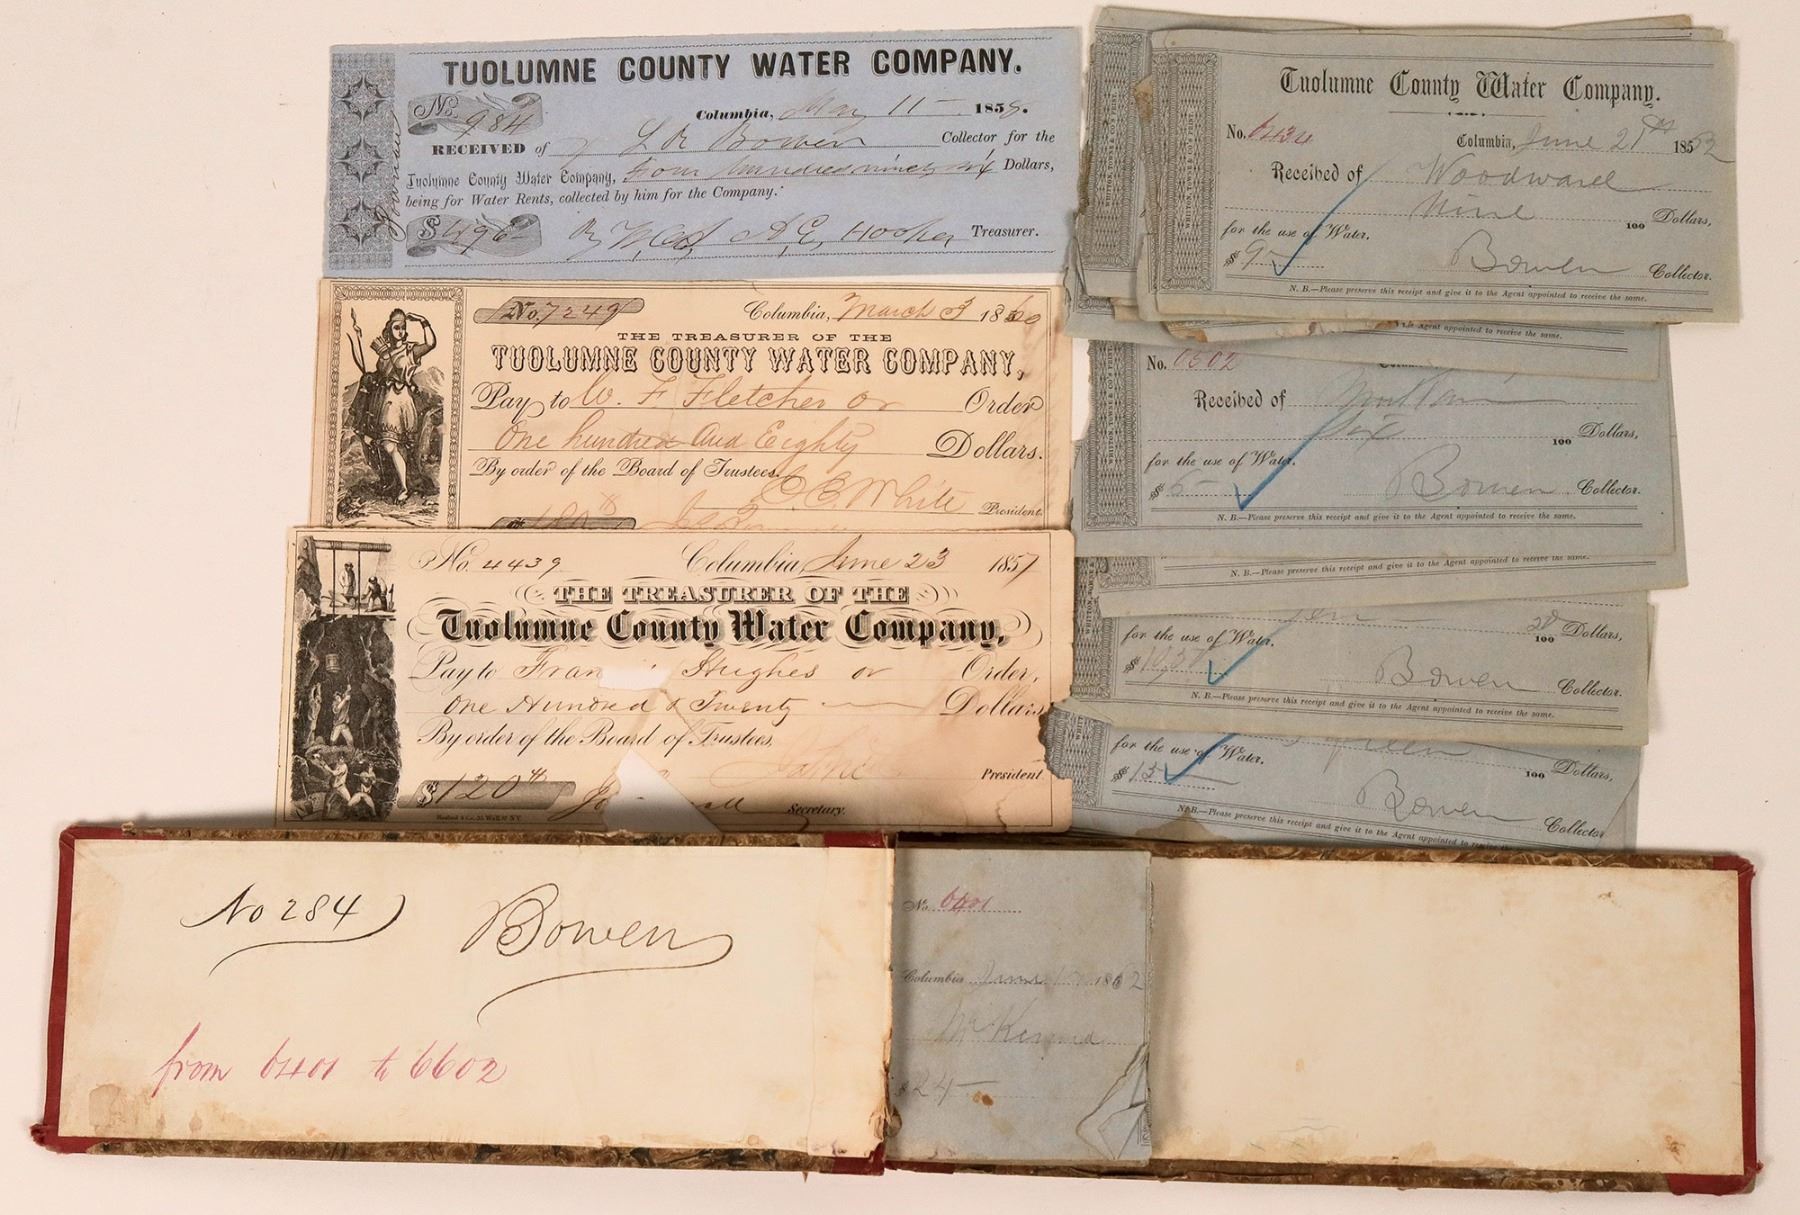 TUOLUMNE COUNTY WATER COMPANY.
No. 984
Columbia, May 11 1858.
RECEIVED of L R Bowen Collector for the
Tuolumne County Water Company, four hundred ninety six Dollars,
being for Water Rents, collected by him for the Company.
$ 496 By A. E. Hooker Treasurer.
No. 7249 Columbia, March 3 1860
THE TREASURER OF THE
TUOLUMNE COUNTY WATER COMPANY,
Pay to W. F. Fletcher or Order
One hundred and Eighty Dollars.
By order of the Board of Trustees.
White President
No. 4439 Columbia, June 23 1857
THE TREASURER OF THE
Tuolumne County Water Company,
Pay to Fran Hughes or Order,
One Hundred & Twenty Dollars
By order of the Board of Trustees.
President
$ 120
Secretary.
Tuolumne County Water Company.
No. 6434 Columbia, June 21st 1862
Received of Woodward
Nine 100 Dollars,
for the use of Water.
$ 9 Bowen Collector.
N. B.—Please preserve this receipt and give it to the Agent appointed to receive the same.
Agent appointed to receive the same.
No.
Received of
Six 100 Dollars,
for the use of Water.
$ 6 Bowen Collector.
N. B.—Please preserve this receipt and give it to the Agent appointed to receive the same.
N. B.—Please preserve this receipt and give it to the Agent appointed to receive the same.
100 Dollars,
for the use of Water.
$ Bowen Collector.
N. B.—Please preserve this receipt and give it to the Agent appointed to receive the same.
100 Dollars,
for the use of Water.
$ 15 Bowen Collector
N. B.—Please preserve this receipt and give it to the Agent appointed to receive the same.
No 284
Bowen
from 6401 to 6602
No. 6401
Columbia June 1862
$ 24